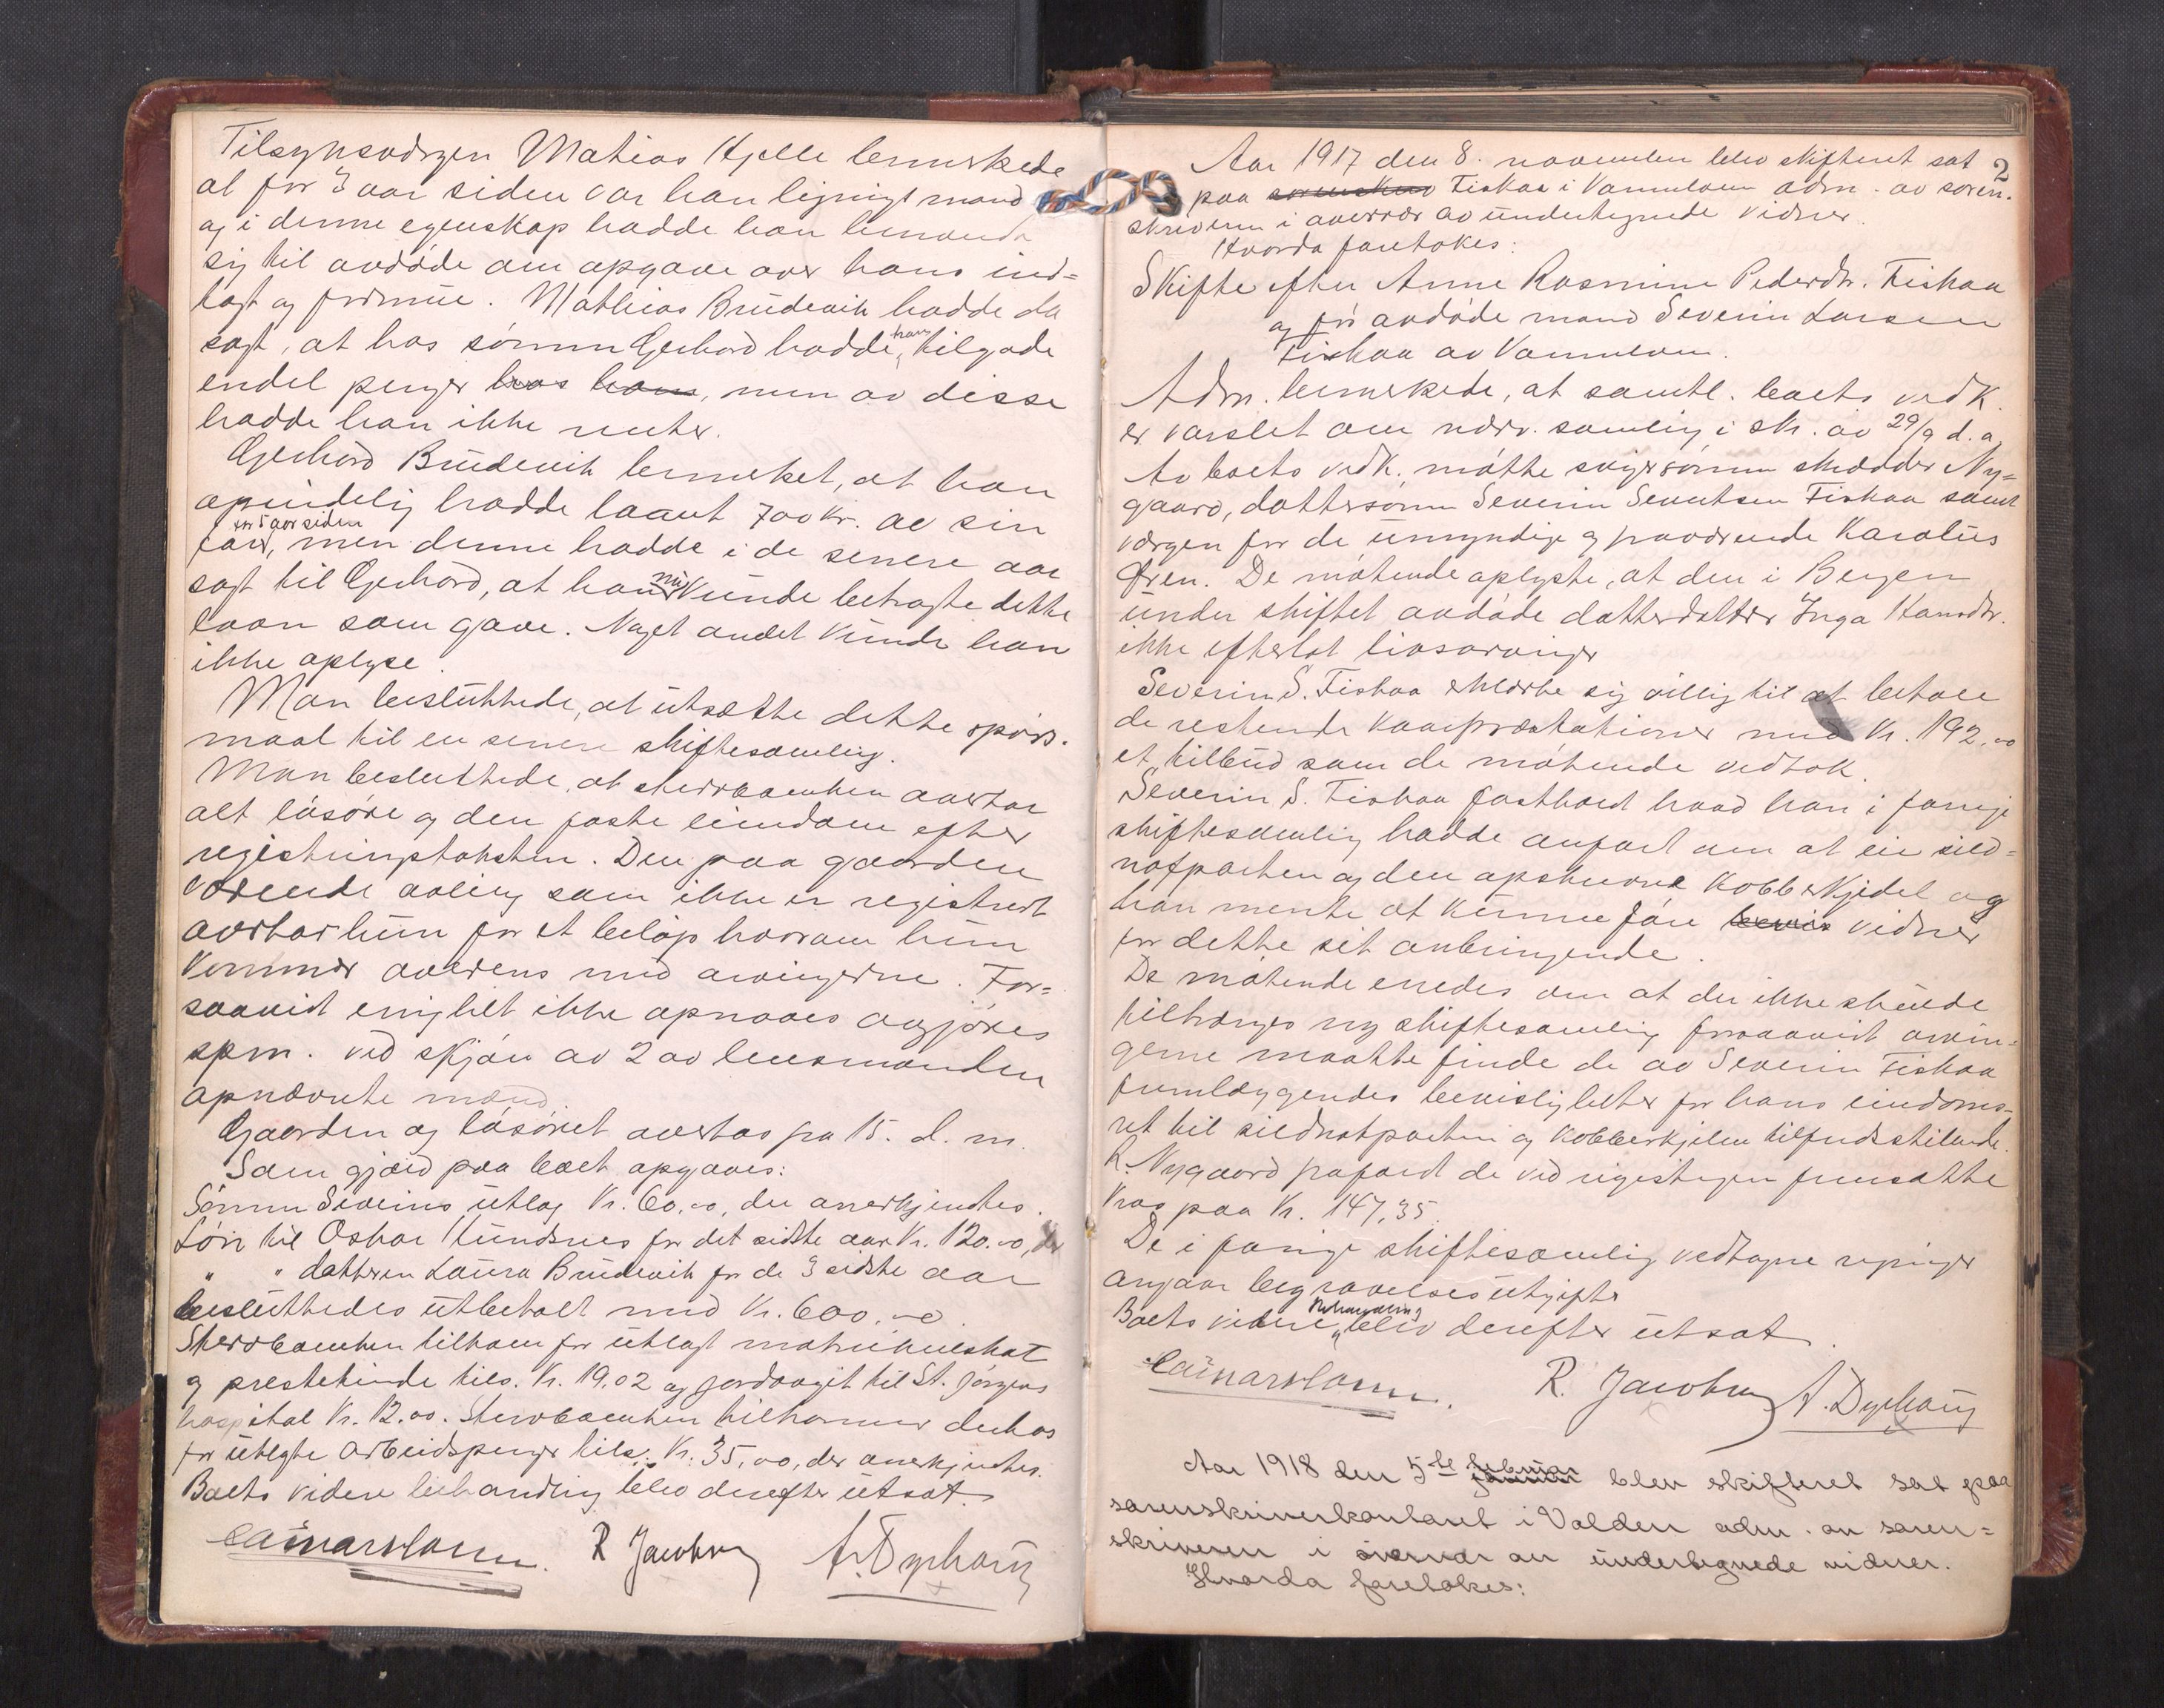 Tilsynsværgen Mathias Hjelle bemerkede
at for 3 aar siden var han lignigsmand
og i denne egenskap hadde han henvendt
sig til avdøde om opgave over hans ind=
tægt og formue. Mathias Brudevik hadde da
sagt, at hos sønnen Gerhard hadde han tilgode
endel penger hos ham, men av disse
hadde han ikke renter.
Gerhard Brudevik bemerket, at han
oprindelig hadde laant 700 kr. av sin
far for 5 aar siden, men denne hadde i de senere aar
sagt til Gerhard, at han nu kunde betragte dette
laan som gave. Noget andet kunde han
ikke oplyse.
Man besluttede, at utsætte dette spørs-
maal til en senere skiftesamling.
Man besluttede, at stervboenken overtar
alt løsøre og den faste eiendom efter
registringstaksten. Den paa gaarden
værende avling som ikke er registrert
overtar hun for et beløp hvorom hun
kommer overens med arvingerne. For=
saavidt enighet ikke opnaaes avgjøres
spm. ved skjøn av 2 av lensmanden
opnævnte mænd.
Gaarden og løsøret overtas fra 15. d. m.
Som gjæld paa boet opgaves:
Sønnen Severins utlæg Kr. 60.00, der anerkjendtes.
Løn til Oskar Hundsnes for det sidste aar Kr. 120.00, der
" " datteren Laura Brudevik for de 3 sidste aar
besluttedes utbetalt med Kr. 600.00
Stervboenken tilkom for utlagt matrikulskat
og prestetiende tils. Kr. 19.02 og jordavgit til St. Jørgens
hospital Kr. 12.00. Stervboenken tilkommer derhos
for utlagte arbeidspenger tils. Kr. 35,00, der anerkjentes.
Boets videre behandling blev derefter utsat.
R Jacobsen A. Dyrhaug
2
Aar 1917 den 8. november blev skifteret sat
paa sorenskriv Fiskaa i Vanmelven adm. av soren-
skriveren i overvær av undertegnede vidner.
Hvorda foretokes:
Skifte efter Anne Rasmine Pedersdtr. Fiskaa
og før avdøde mand Severin Larsen
Fiskaa av Vanmelven.
Adm. bemerkede, at samtl. boets vedk.
er varslet om nærv. samling i skr. av 29/9 d. a.
Av boets vedk. møtte svigersønnen skrædder Ny=
gaard, dattersønn Severin Sevrtsen Fiskaa samt
værgen for de umyndige og fraværende Karolus
Øren. De møtende oplyste, at den i Bergen
under skiftet avdøde datterdatter Inga Hansdtr.
ikke efterlot livsarvinger
Severin S. Fiskaa erklærte sig villig til at betale
de restende kaarpræstationer med Kr. 192.00
et tilbud som de møtende vedtok.
Severin S. Fiskaa fastholdt hvad han i forrige
skiftesamling hadde anført om at eie sild=
notparten og den opskrevne kobberkjedel og
han mente at kunne føre bevis vidner
for dette sit anbringende.
De møtende enedes om at der ikke skulde
tiltrænges ny skiftesamling forsaavidt arvin-
gerne maatte finde de av Severin Fiskaa
fremlæggendes bevisligheter for hans eiendoms-
ret til sildnotparten og kobberkjelen tilfredsstilende.
R. Nygaard frafaldt de ved registringen fremsatte
krav paa Kr. 147,35.
De i forrige skiftesamling vedtagne regninger
angaar begravelsesutgifter
Boets videre behandling blev derefter utsat.
R. Jacobsen A. Dyrhaug
Aar 1918 den 5te januar februar blev skifteret sat paa
sorenskriverkontoret i Volden adm. av soren=
skriveren i overvær av undertegnede vidner.
Hvorda foretokes: